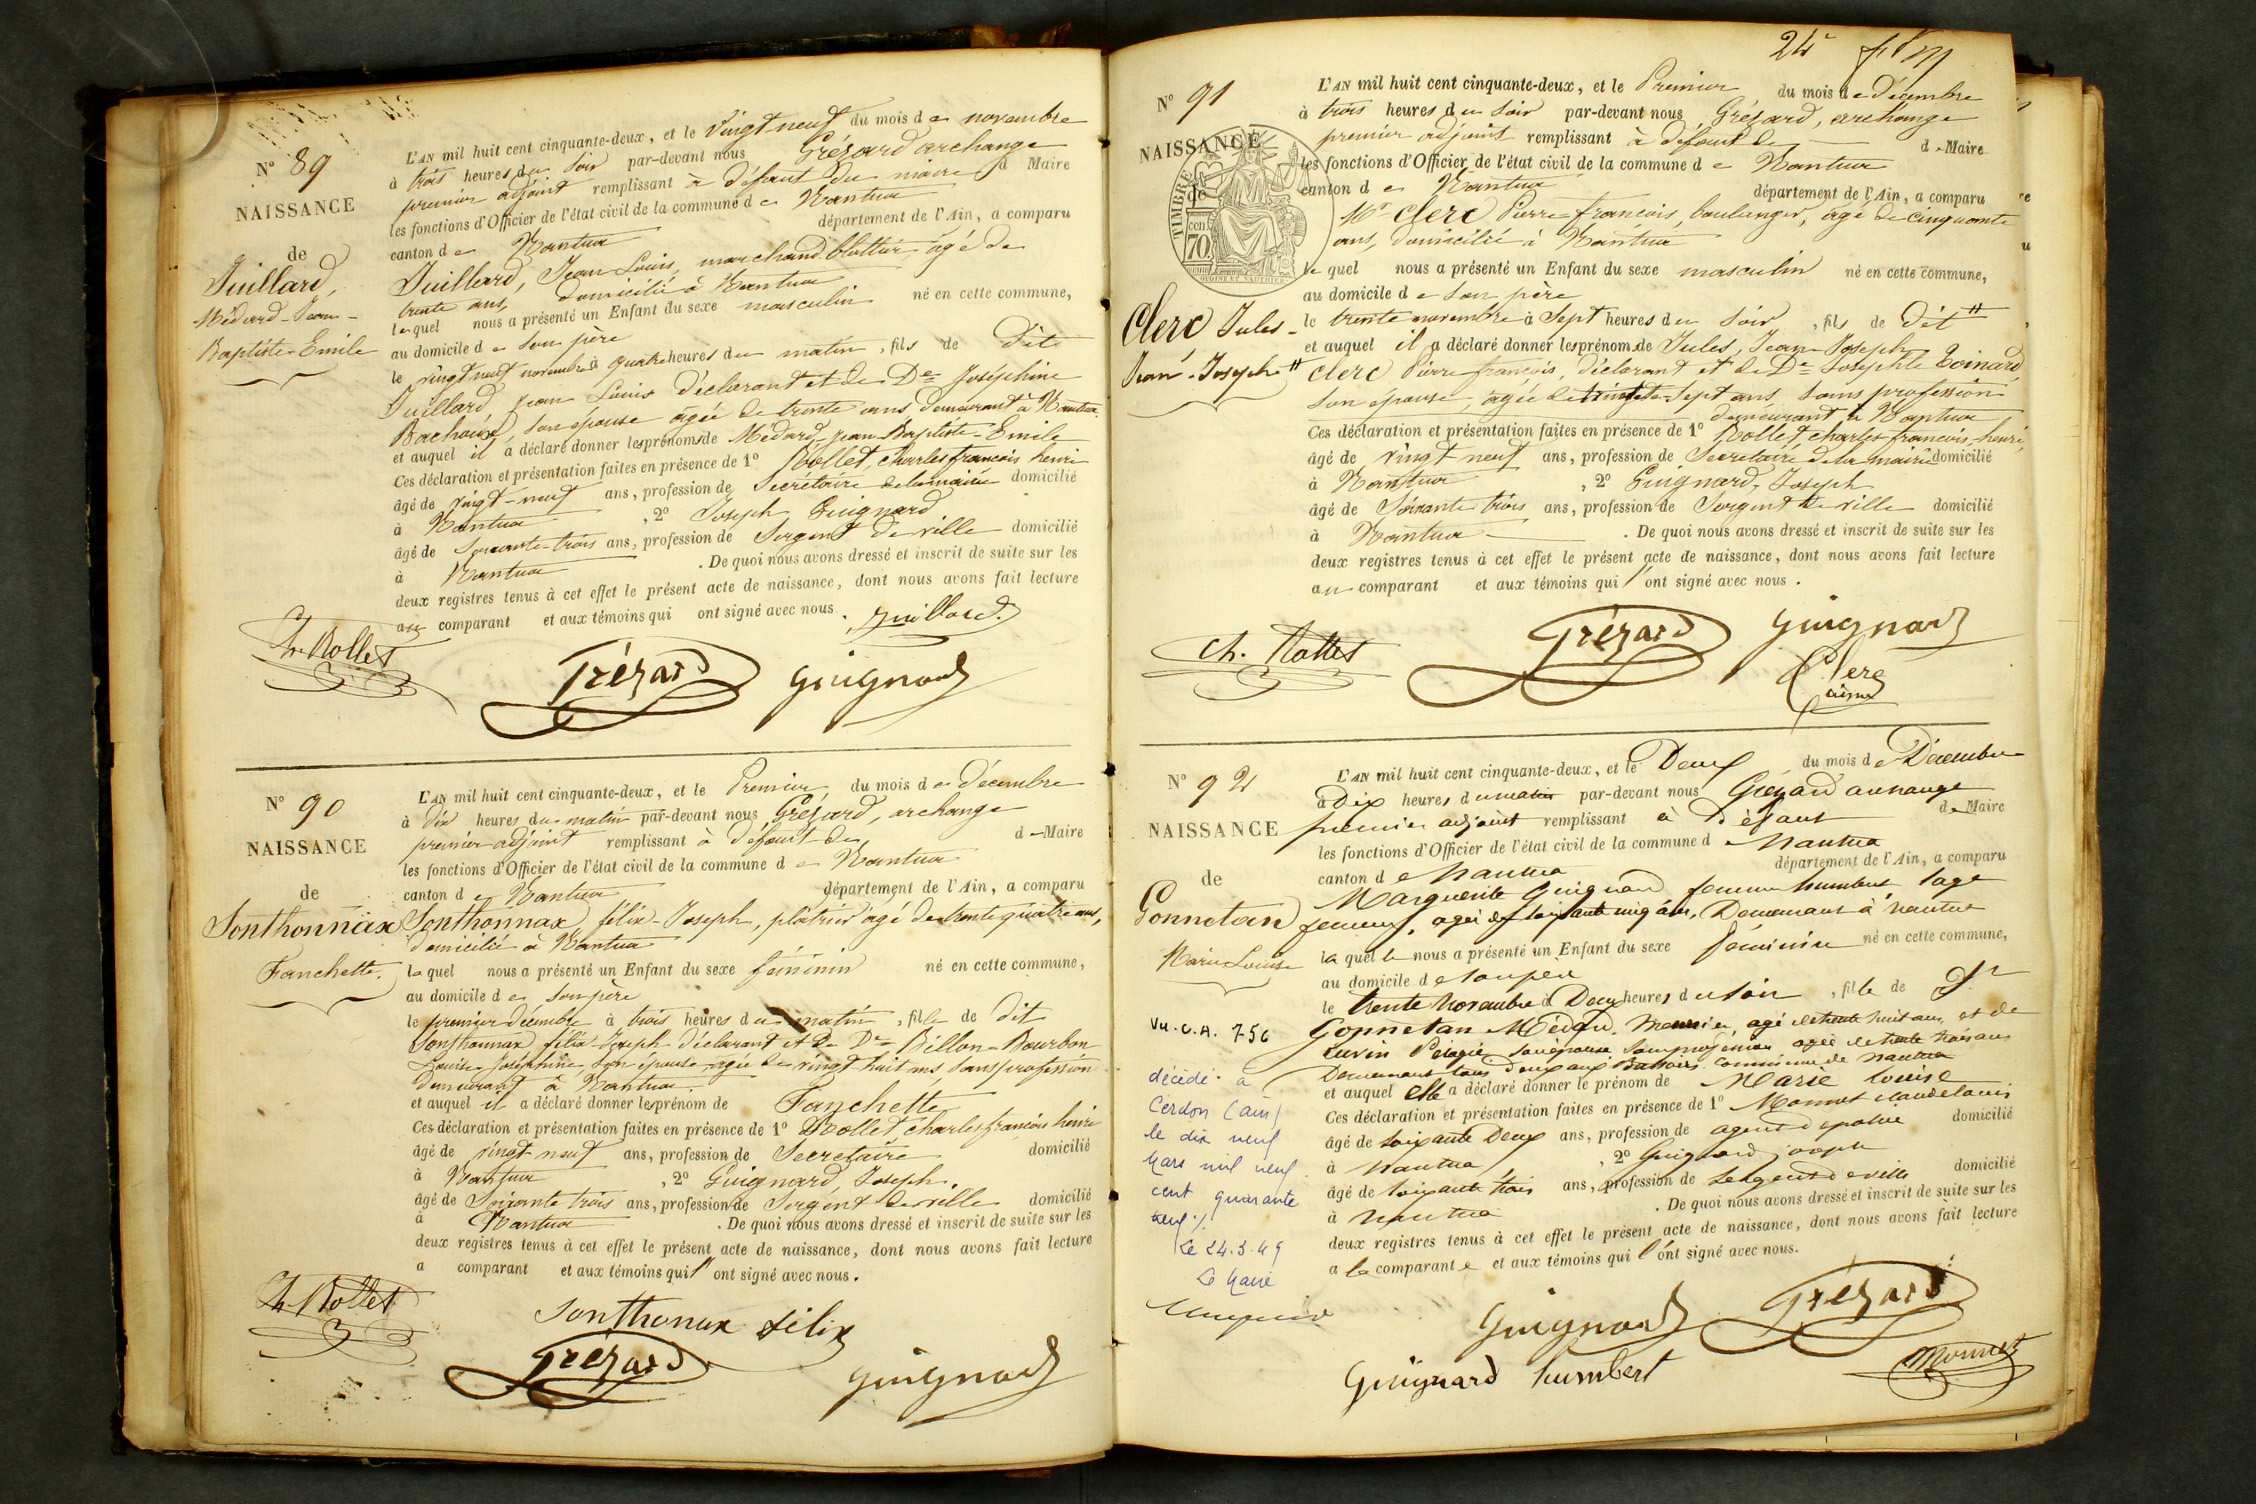 N° 89
NAISSANCE
de
Juillard,
Médard-Jean-
Baptiste-Emile
L'AN mil huit cent cinquante-deux, et le vingt neuf du mois de novembre
à trois heures du soir par-devant nous Grézard archange
premier adjoint remplissant à défaut du maire d Maire
les fonctions d'Officier de l'état civil de la commune de Nantua
canton de Nantua département de l'Ain, a comparu
Juillard, Jean Louis, marchand âgé de
trente ans, domicilié à Nantua
lequel nous a présenté un Enfant du sexe masculin né en cette commune,
au domicile de son père
le vingt neuf novembre à quatre heures du matin, fils de dit
Juillard Jean Louis déclarant et de De Joséphine
Bachoux, son épouse agée de trente ans, demeurant à Nantua
et auquel il a déclaré donner les prénoms de Médard-Jean-Baptiste-Emile
Ces déclaration et présentation faites en présence de 1° Rollet, charles françois henri
âgé de vingt-neuf ans, profession de Secrétaire de la mairie domicilié
à Nantua, 2° Joseph Guignard
âgé de Soixante-trois ans, profession de Sergent de ville domicilié
à Nantua . De quoi nous avons dressé et inscrit de suite sur les
deux registres tenus à cet effet le présent acte de naissance, dont nous avons fait lecture
au comparant et aux témoins qui ont signé avec nous. Juillard
Ch. Rollet Grézard Guignard
N° 90
NAISSANCE
de
Sonthonnax
Fanchette.
L'AN mil huit cent cinquante-deux, et le Premier du mois de décembre
à dix heures du matin par-devant nous Grézard, archange
premier adjoint remplissant à défaut du d Maire
les fonctions d'Officier de l'état civil de la commune de Nantua
canton de Nantua département de l'Ain, a comparu
Sonthonnax félix-Joseph, plâtrier âgé de trente quatre ans,
domicilié à Nantua
lequel nous a présenté un Enfant du sexe féminin né en cette commune,
au domicile de son père
le premier décembre à trois heures du matin, fille de dit
Sonthonnax félix-Joseph déclarant et de De Billon-Bourbon
Louise Joséphine, son épouse agée de vingt huit ans, sans profession
demeurant à Nantua.
et auquel il a déclaré donner les prénom de Fanchette
Ces déclaration et présentation faites en présence de 1° Rollet charles françois henri
âgé de vingt neuf ans, profession de Secrétaire domicilié
à Nantua, 2° Guignard, Joseph,
âgé de Soixante trois ans, profession de Sergent de ville domicilié
à Nantua . De quoi nous avons dressé et inscrit de suite sur les
deux registres tenus à cet effet le présent acte de naissance, dont nous avons fait lecture
a comparant et aux témoins qui ont signé avec nous.
Ch. Rollet Sonthonax félix
Grézard Guignard
24
N° 91
NAISSANCE
de
TIMBRE
70
Clerc Jules-
Jean-Joseph
L'AN mil huit cent cinquante-deux, et le Premier du mois de décembre
à trois heures du soir par-devant nous Grézard, archange
premier adjoint remplissant à défaut de d Maire
les fonctions d'Officier de l'état civil de la commune de Nantua
canton de Nantua département de l'Ain, a comparu
Mr Clerc Pierre-françois, boulanger, âgé de cinquante
ans, domicilié à Nantua
lequel nous a présenté un Enfant du sexe masculin né en cette commune,
au domicile de son père
le trente novembre à sept heures du soir, fils de dit
et auquel il a déclaré donner les prénoms de Jules, Jean-Joseph
Clerc Pierre françois, déclarant et de De Josephte
son épouse, âgée de trente-sept ans sans profession
demeurant à Nantua
Ces déclaration et présentation faites en présence de 1° Rollet charles françois-henri,
âgé de vingt neuf ans, profession de Secrétaire de la mairie domicilié
à Nantua, 2° Guignard, Joseph
âgé de Soixante trois ans, profession de Sergent de ville domicilié
à Nantua . De quoi nous avons dressé et inscrit de suite sur les
deux registres tenus à cet effet le présent acte de naissance, dont nous avons fait lecture
au comparant et aux témoins qui ont signé avec nous.
Ch. Rollet Grézard Guignard
Clerc
N° 92
NAISSANCE
de
Gonnetan
Marie Louise
Vu. C.A. 756
décédé à
Cerdon (ain)
le dix neuf
Mars mil neuf
cent quarante
neuf ./.
Le 24.3.49
Le Maire
L'AN mil huit cent cinquante-deux, et le Deux du mois de Décembre
à Dix heures du matin par-devant nous Grézard archange
premier adjoint remplissant à Défaut de Maire
les fonctions d'Officier de l'état civil de la commune de Nantua
canton de Nantua département de l'Ain, a comparu
Marguerite Guignard femme humbert, sage
femme, agée de soixante cinq ans, Demeurant à nantua
laquelle nous a présenté un Enfant du sexe féminin né en cette commune,
au domicile de son père
le trente novembre à Deux heures du soir, fille de
Gonnetan Médard meunier, agé de trente huit ans, et de
Cuvin Pélagie, son épouse sans profession agée de trente trois ans
Demeurant tous deux aux Battoirs commune de nantua
et auquel elle a déclaré donner le prénom de Marie Louise
Ces déclaration et présentation faites en présence de 1° Monnet claude louis
âgé de soixante Deux ans, profession de agent de police domicilié
à Nantua, 2° Guignard joseph
âgé de soixante trois ans, profession de sergent de ville domicilié
à Nantua . De quoi nous avons dressé et inscrit de suite sur les
deux registres tenus à cet effet le présent acte de naissance, dont nous avons fait lecture
a la comparante et aux témoins qui ont signé avec nous.
Guignard Grézard
Guignard humbert Monnet